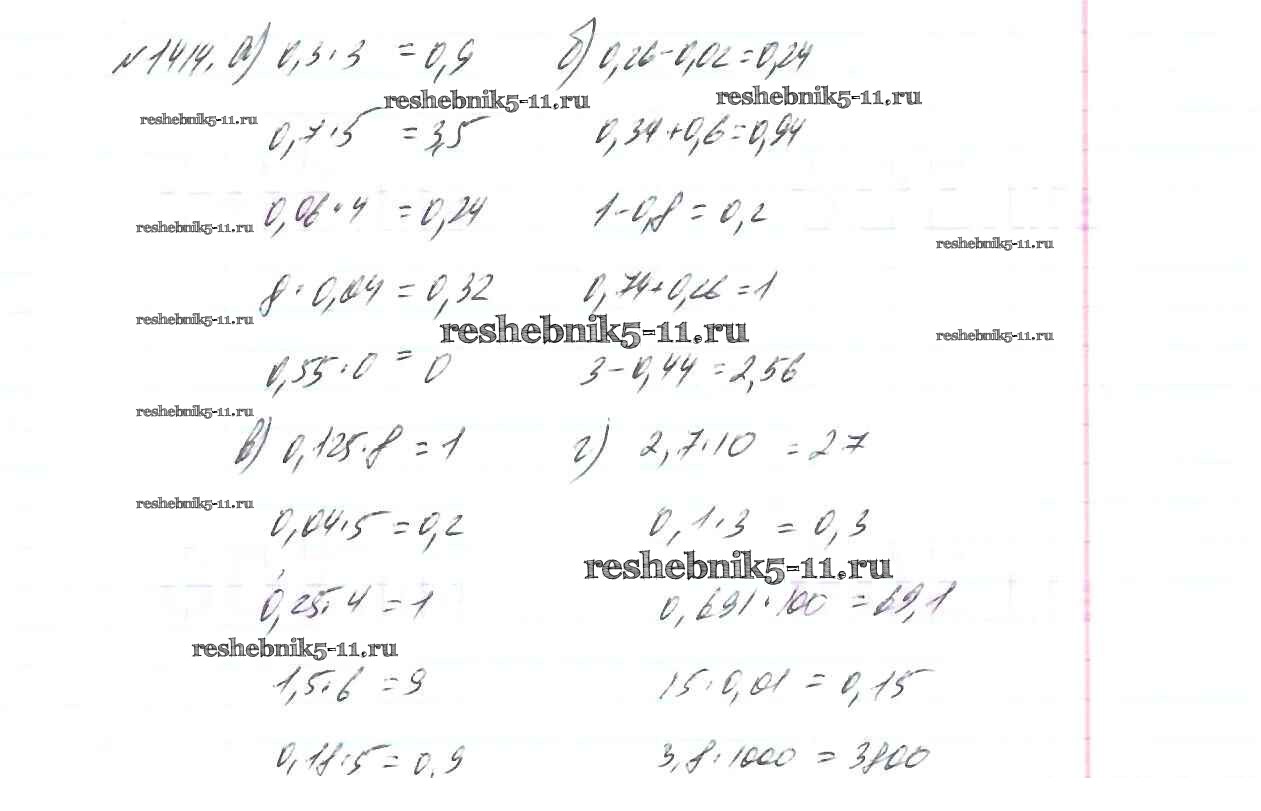 №1414. а) 0,3·3 = 0,9 б) 0,26-0,02=0,24
reshebnik5-11.ru reshebnik5-11.ru
reshebnik5-11.ru
0,7·5 = 3,5 0,34+0,6=0,94
0,06·4 = 0,24 1-0,8 = 0,2
reshebnik5-11.ru
reshebnik5-11.ru
8·0,04 = 0,32 0,74+0,26=1
reshebnik5-11.ru reshebnik5-11.ru
reshebnik5-11.ru
0,55·0 = 0 3-0,44=2,56
reshebnik5-11.ru
в) 0,125·8 = 1 г) 2,7·10 = 27
reshebnik5-11.ru
0,04·5 = 0,2 0,1·3 = 0,3
reshebnik5-11.ru
0,25·4 = 1 0,691·100 = 69,1
reshebnik5-11.ru
1,5·6 = 9 15·0,01 = 0,15
0,18·5 = 0,9 3,8·1000 = 3800